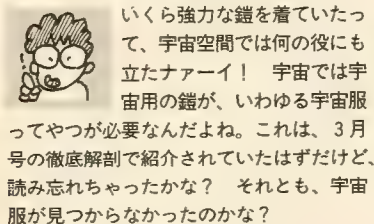 いくら強力な鎧を着ていたっ
て、宇宙空間では何の役にも
立たナァーイ！　宇宙では宇
宙用の鎧が、いわゆる宇宙服
ってやつが必要なんだよね。これは、3月
号の徹底解剖で紹介されていたはずだけど、
読み忘れちゃったかな？　それとも、宇宙
服が見つからなかったのかな？